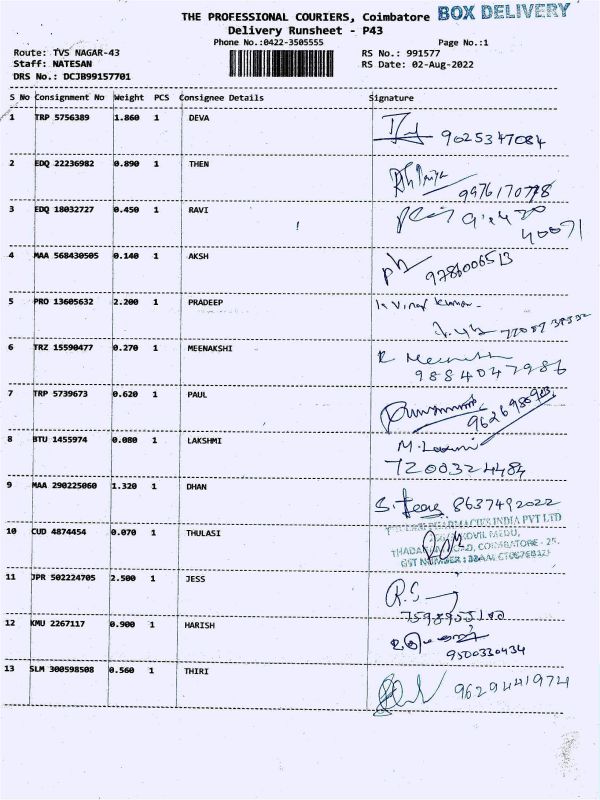 THE PROFESSIONAL COURIERS, Coimbatore BOX DELIVERY
Delivery Runsheet - P43
Phone No.:0422-3505555 Page No.:1
Route: TVS NAGAR-43 RS No.: 991577
Staff: NATESAN RS Date: 02-Aug-2022
DRS No.: DCJB99157701
S No Consignment No Weight PCS Consignee Details Signature
1 TRP 5756389 1.860 1 DEVA
9025347084
2 EDQ 22236982 0.890 1 THEN
3 EDQ 18032727 0.450 1 RAVI
40071
4 MAA 568430505 0.140 1 AKSH
9786006513
5 PRO 13605632 2.200 1 PRADEEP K Vinay Kumar
6 TRZ 15590477 0.270 1 MEENAKSHI
9884047986
7 TRP 5739673 0.620 1 PAUL
8 BTU 1455974 0.080 1 LAKSHMI M. Laxmi
7200324484
9 MAA 290225060 1.320 1 DHAN
8637492022
10 CUD 4874454 0.070 1 THULASI PHARMACIES INDIA PVT LTD
COIMBATORE - 25.
GST NUMBER :
11 JPR 502224705 2.500 1 JESS R.S
12 KMU 2267117 0.900 1 HARISH
9500330434
13 SLM 300598508 0.560 1 THIRI
9629441974